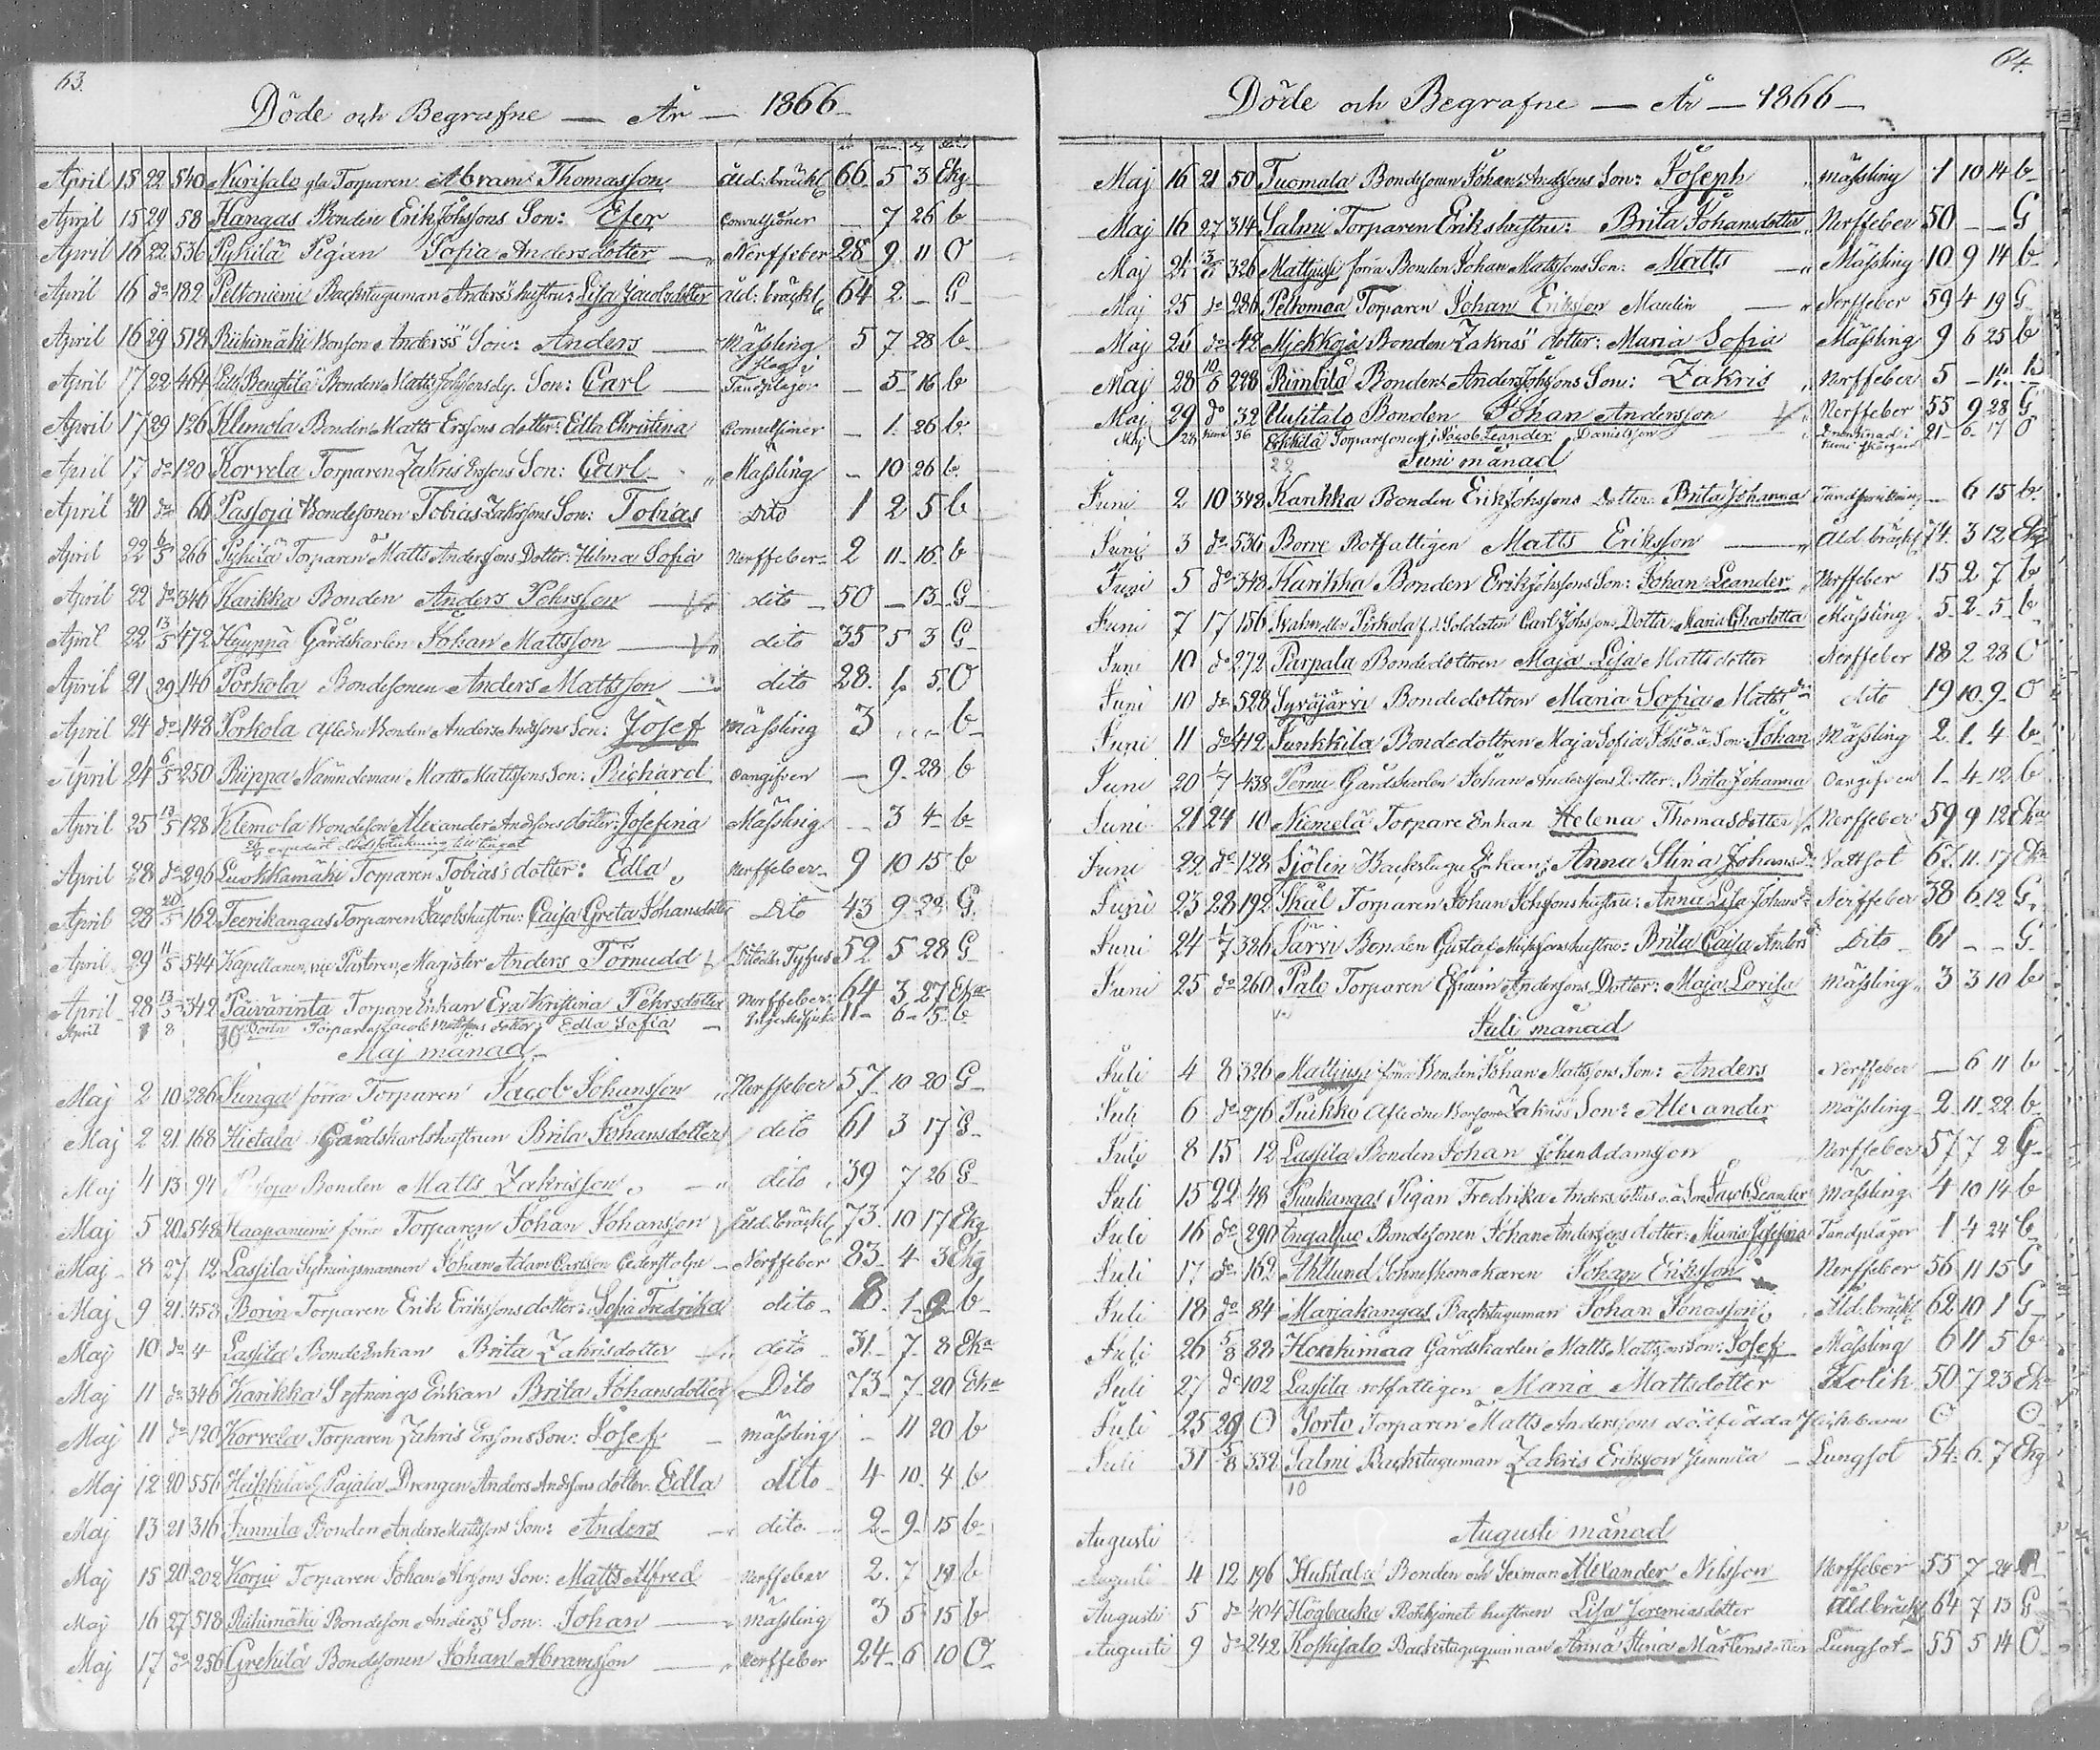 63.
Döde och Begrafne — År — 1866 —
April 15 22 540 Nurisalo gla Torparen Abram Thomasson åld: bräckl 66 5 3 Ekg
April 15 29 58 Kangas Bonden Erik Johssons Son: Eser Convulsioner — 7 26 b
April 16 22 536 Pyhilä Pigan Sofia Andersdotter — Nerffeber 28 9 11 O
April 16 do 182 Peltoniemi Backstuguman Anders's hustru: Lisa Jacobsdotter åld: bräckl 64 2 — G
April 16 29 518 Riihimäki Bonson Anders's Son: Anders — Mässling 5 7 28 b
April 17 22 464 Bengtilä Bonden Matts Johssons dy. Son: Carl — Slag Tandplågor — 5 16 b
April 17 29 126 Klemola Bonden Matts Erssons dotter: Edla Christina Convulsioner — 1. 26 b.
April 17 do 120 Korvela Torparen Zakris Erssons Son: Carl Mässling — 10 26 b.
April 20 do 66 Passoja Bondesonen Tobias Zakrissons Son: Tobias Dito 1 2 5 b
April 22 6/5 266 Pyhilä Torparen Matts Anderssons Dotter: Hilma Sofia Nerffeber 2 11 16 b
April 22 do 346 Karikka Bonden Anders Pehrsson — dito 50 — 13 G
April 22 13/5 472 Kyyppä Gårdskarlen Johan Mattsson — dito 35 5 3 G
April 21 29 146 Porkola Bondesonen Anders Mattsson — dito 28. 1. 5. O
April 24 do 148 Porkola Afledne Bonden Anders Andssons Son: Josef Mässling 3 . . . b
April 24 6/5 250 Riippa Nämndeman Matts Mattssons Son: Richard oangifven — 9 28 b
April 25 13/5 128 Klemola Bondeson Alexander Andssons dotter: Josefina Mässling — 3 4 b
April 28 do 296 Luokkamäki Torparen Tobias's dotter: Edla Nerffeber 9 10 15 b
April 28 20/5 162 Teerikangas Torparen Jacobs hustru: Caisa Greta Johansdotter Dito 43 9 28 G.
April 29 11/5 544 Kapellanen, vice Pastoren, Magister Anders Törnudd Typhus 52 5 28 G
April 28 13/5 342 Päivärinta Torpare Enkan Eva Kristina Pehrsdotter Nerffeber 64 3 27 Eka
April 1 8 30 Torparen Jacob Mattssons dotter: Edla Sofia — 11 6 5 b
Maj månad
Maj 2 10 286 Junga förra Torparen Jacob Johansson Nerffeber 57 10 20 G
Maj 2 21 168 Hietala Gårdskarlshustrun Brita Johansdotter dito 61 3 17 G
Maj 4 13 94 Bonden Matts Zakrisson — dito 39 7 26 G
Maj 5 20 548 Haapaniemi förra Torparen Johan Johansson åld. bräckl 73. 10 17 Ekg
Maj 8 27 12 Lassila Sytningsmannen Johan Adam Carlsson Nerffeber 83 4 3 Ekg
Maj 9 21 453 Borin Torparen Erik Erikssons dotter: Sofia Fredrika dito 8. 1 9 b
Maj 10 do 4 Lassila Bonde Enkan Brita Zakrisdotter dito 31. 7 8 Eka
Maj 11 do 346 Karikka Sytnings Enkan Brita Johansdotter Dito 73 7 20 Eka
Maj 11 do 120 Korvela Torparen Zakris Erssons Son: Josef — mässling — 11 20 b
Maj 12 20 556 Pajala Drengen Anders Andssons dotter: Edla dito 4 10. 4 b
Maj 13 21 316 Junnila Bonden Anders Mattssons Son: Anders — dito 2 9 15 b
Maj 15 20 202 Korpi Torparen Johan Abrssons Son: Matts Alfred Nerffeber 2. 7 18 b
Maj 16 27 518 Riihimäki Bondeson Anders's Son: Johan — Mässling 3 5 15 b
Maj 17 do 256 Grekilä Bondesonen Johan Abramsson — Nerffeber 24 6 10 O
64.
Döde och Begrafne — År — 1866 —
Maj 16 21 50 Tuomala Bondesonen Johan Andssons Son: Joseph mässling 1 10 14 b
Maj 16 27 314 Salmi Torparen Eriks hustru: Brita Johansdotter Nerffeber 50 — — G
Maj 24 326 förra Bonden Johan Mattssons Son: Matts — Mässling 10 9 14 b
Maj 25 do 286 Peltomaa Torparen Johan Eriksson — Nerffeber 59 4 19 G
Maj 26 do 42 Mjekkoja Bonden Zakris's dotter: Maria Sofia Mässling 9 6 25 b
Maj 28 10/6 228 Rimbilä Bonden Anders Johssons Son: Zakris Nerffeber 5 — 14 b
Maj 29 do 32 Uusitalo Bonden Johan Andersson Nerffeber 55 9 28 G
Maj 28 36 Torparsonen Jacob Leander Danielsson 21 6 17 O
22 Juni månad
Juni 2 10 348 Karikka Bonden Erik Johssons Dotter: Brita Johanna — 6 15 b
Juni 3 do 536 Borre Rotfattigen Matts Eriksson — Åld. bräckl 74. 3 12 Ekg
Juni 5 do 348 Karikka Bonden Erik Johssons Son: Johan Leander Nerffeber 15 2 7 b
Juni 7 17 156 Porkola f.d. Soldaten Carl Johssons Dotter Maria Charlotta Mässling 5 2 5 b
Juni 10 do 272 Parpala Bondedottren Maja Lisa Mattsdotter Nerffeber 18 2 28 O
Juni 10 do 528 Syräjärvi Bondedottren Maria Sofia Matts dr dito 19 10. 9. O
Juni 11 do 412 Junkkila Bondedottren Maja Sofia Johs o.ä. Son Johan Mässling 2. 1. 4 b
Juni 20 1/7 438 Pernu Gårdskarlen Johan Anderssons Dotter: Brita Johanna Oangifven 1 4 12 b
Juni 21 24 10 Niemelä Torpare Enkan Helena Thomasdotter Nerffeber 59 9 12 Eka
Juni 22 do 128 Sjölin Backstugu Enkan: Anna Stina Johansdr Vattsot 67. 11. 17 Eka
Juni 23 28 192 Skål Torparen Johan Johssons hustru: Anna Lisa Johansdr Nerffeber 38 6. 12 G.
Juni 24 1/7 386 Järvi Bonden Gustaf hustru: Brita Caisa Anders dr Dito 61 — — G
Juni 25 do 260 Palo Torparen Efraim Anderssons Dotter: Maja Lovisa Mässling 3 3 10 b
Juli månad
Juli 4 8 326 förra Bonden Johan Mattssons Son: Anders Nerffeber — 6 11 b
Juli 6 do 276 Puikko Afledne Bonsonen Zakris's Son: Alexander Mässling 2 11 22 b.
Juli 8 15 12 Lassila Bonden Johan Johan Adamsson Nerffeber 57 7 2 G
Juli 15 22 48 Puukangas Pigan Fredrika Andersdotters o.ä. Son Jacob Leander Mässling 4 10 14 b
Juli 16 do 290 Bondesonen Johan Anderssons dotter: Maria Josefina Tandplågor 1 4 24 b
Juli 17 do 162 Ahllund Sokneskomakaren Johan Eriksson Nerffeber 56 11 15 G
Juli 18 do 84 Marjakangas Backstuguman Johan Jonasson Åld. bräckl 62 10 1 G
Juli 26 5/8 88 Gårdskarlen Matts Mattssons Son: Josef Mässling 6 11 5 b
Juli 27 do 102 Lassila rotfattigen Maria Mattsdotter Kolik 50 7 23 Eka
Juli 25 29 O Porto Torparen Matts Anderssons dödfödda flickbarn O O
Juli 31 5/8 332 Salmi Backstuguman Zakris Eriksson — Lungsot 54. 6. 7 Ekg
10
Augusti Augusti månad
Augusti 4 12 196 Huhtala Bonden och Sexman Alexander Nilsson Nerffeber 55 7 24
Augusti 5 do 404 Högbacka Rotehjonet hustrun Lisa Jeremiasdotter Åld bräckl 64 7 13 G
Augusti 9 do 242 Koskisalo Backstuguqvinnan Anna Stina Mårtensdotter Lungsot 55 5 14 O